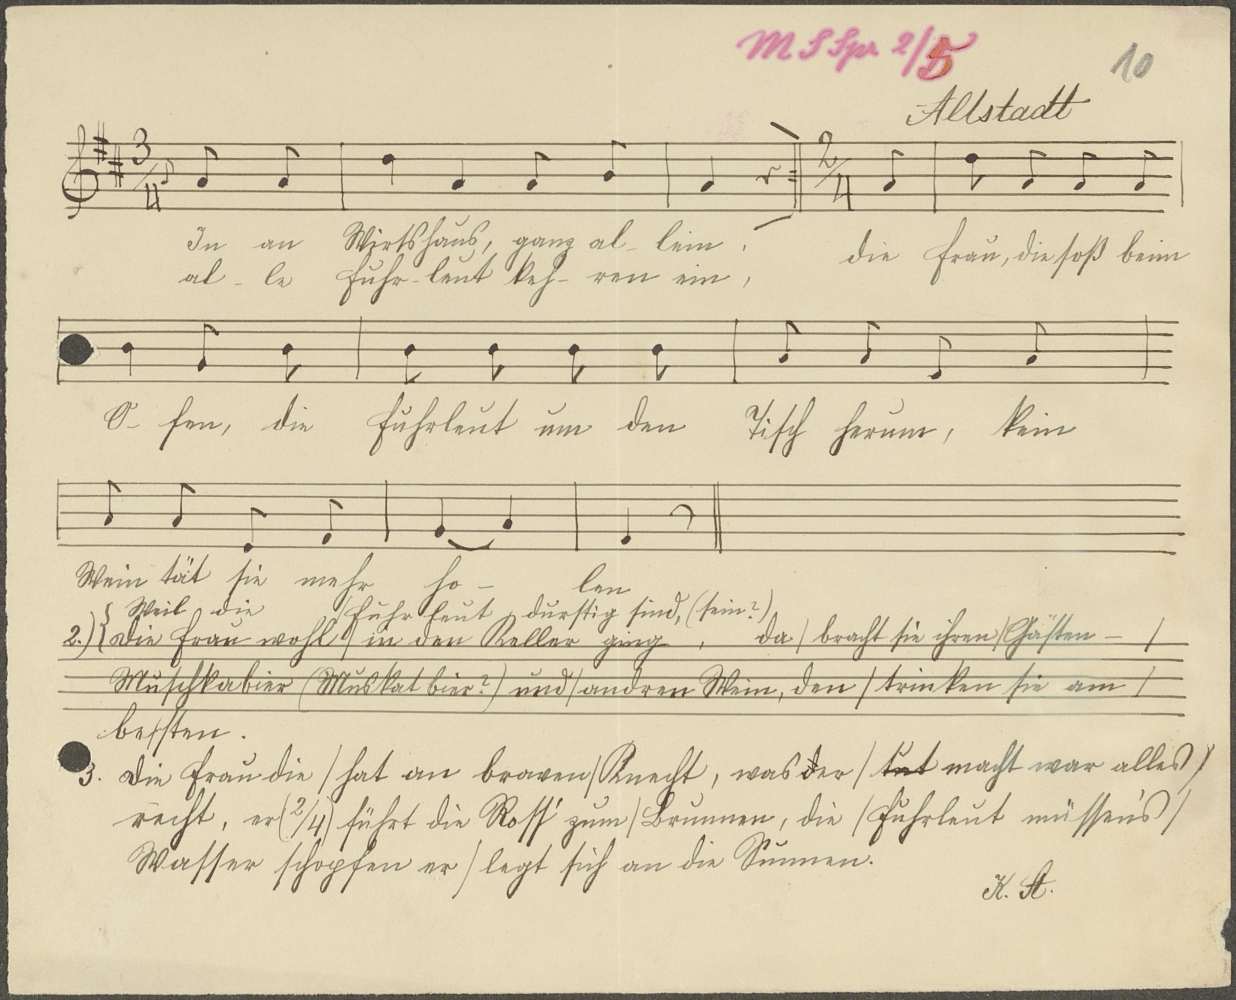 M S Spr 2/5
10
Altstadt
3/4 2/4
In an Wirtshaus, ganz al- lein, die Frau, die soß beim
al- le Fuhr-leut keh- ren ein,
O- fen, die Fuhrleut um den Tisch herum, kein
Wein tät sie mehr ho- len
Weil die Fuhrleut durstig sind, (sein?)
2.) { Die Frau wohl / in den Keller ging, da / bracht sie ihren / Gästen - /
Muschkabier (Muskatbier?) und / andren Wein, den / trinken sie am /
besten.
3. Die Frau die / hat an braven / Knecht, was der / tut macht war alles /
recht, er (2/4) führt die Ross' zum / Brunnen, die / Fuhrleut müssen's /
Wasser schopfen er / legt sich an die Sunnen.
K. A.